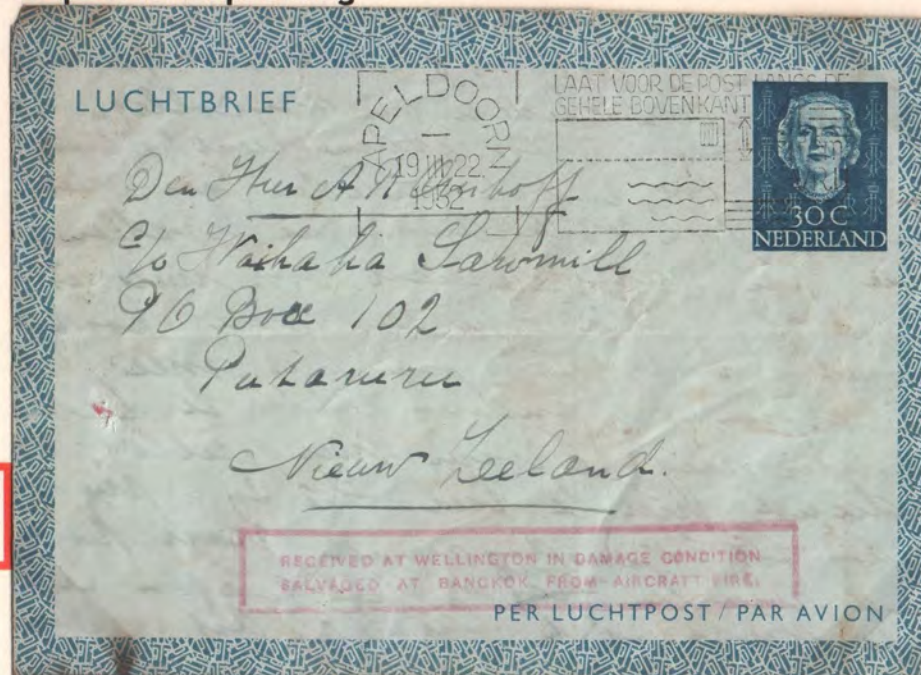 LUCHTBRIEF
APELDOORN
1
19 III 22.
1952
LAAT VOOR DE POST LANGS DE
GEHELE BOVENKANT
30 C
NEDERLAND
Den Heer A
c/o Waihaha Sawmill
PO Box 102
Putaruru
Nieuw Zeeland.
RECEIVED AT WELLINGTON IN DAMAGE CONDITION
SALVAGED AT BANGKOK FROM AIRCRAFT FIRE.
PER LUCHTPOST / PAR AVION